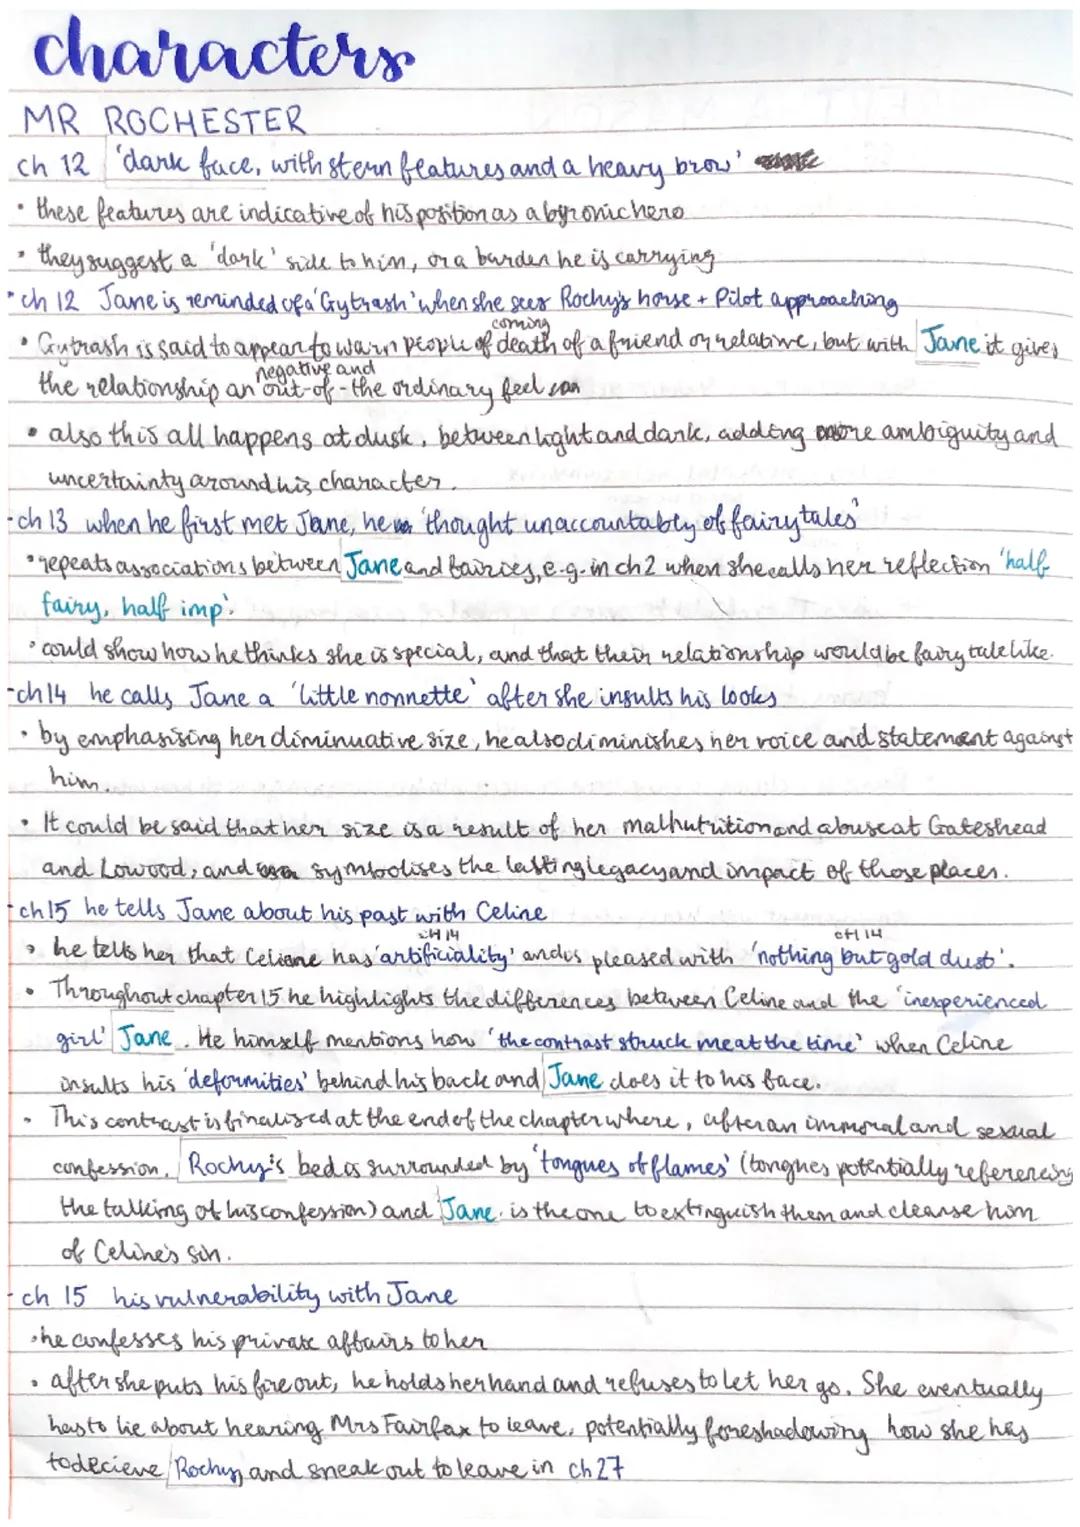 characters
MR ROCHESTER
ch 12 'dark face, with stern features and a heavy brow'
• these features are indicative of his position as a byronic hero
• they suggest a 'dark' side to him, or a burden he is carrying
• ch 12 Jane is reminded of a 'Gytrash' when she sees Rochy's horse + Pilot approaching
coming
• Gytrash is said to appear to warn people of death of a friend or relative, but with Jane it gives
negative and
the relationship an out-of-the ordinary feel
• also this all happens at dusk, between light and dark, adding more ambiguity and
uncertainty around his character.
- ch 13 when he first met Jane, he 'thought unaccountably of fairytales'
• repeats associations between Jane and fairies, e.g. in ch2 when she calls her reflection 'half
fairy, half imp'.
• could show how he thinks she is special, and that their relationship would be fairytale like.
- ch14 he calls Jane a 'little nonnette' after she insults his looks
• by emphasising her diminuative size, he also diminishes her voice and statement against
him.
• It could be said that her size is a result of her malnutrition and abuse at Gateshead
and Lowood, and symbolises the lasting legacy and impact of those places.
- ch15 he tells Jane about his past with Celine
CH 14 CH 14
• he tells her that Celine has 'artificiality' and is pleased with 'nothing but gold dust'.
• Throughout chapter 15 he highlights the differences between Celine and the 'inexperienced
girl' Jane. He himself mentions how 'the contrast struck me at the time' when Celine
insults his 'deformities' behind his back and Jane does it to his face.
• This contrast is finalised at the end of the chapter where, after an immoral and sexual
confession, Rochy's bed is surrounded by 'tongues of flames' (tongues potentially referencing
the talking of his confession) and Jane is the one to extinguish them and cleanse him
of Celine's sin.
- ch 15 his vulnerability with Jane
• he confesses his private affairs to her
• after she puts his fire out, he holds her hand and refuses to let her go. She eventually
has to lie about hearing Mrs Fairfax to leave, potentially foreshadowing how she has
to decieve Rochy and sneak out to leave in ch 27